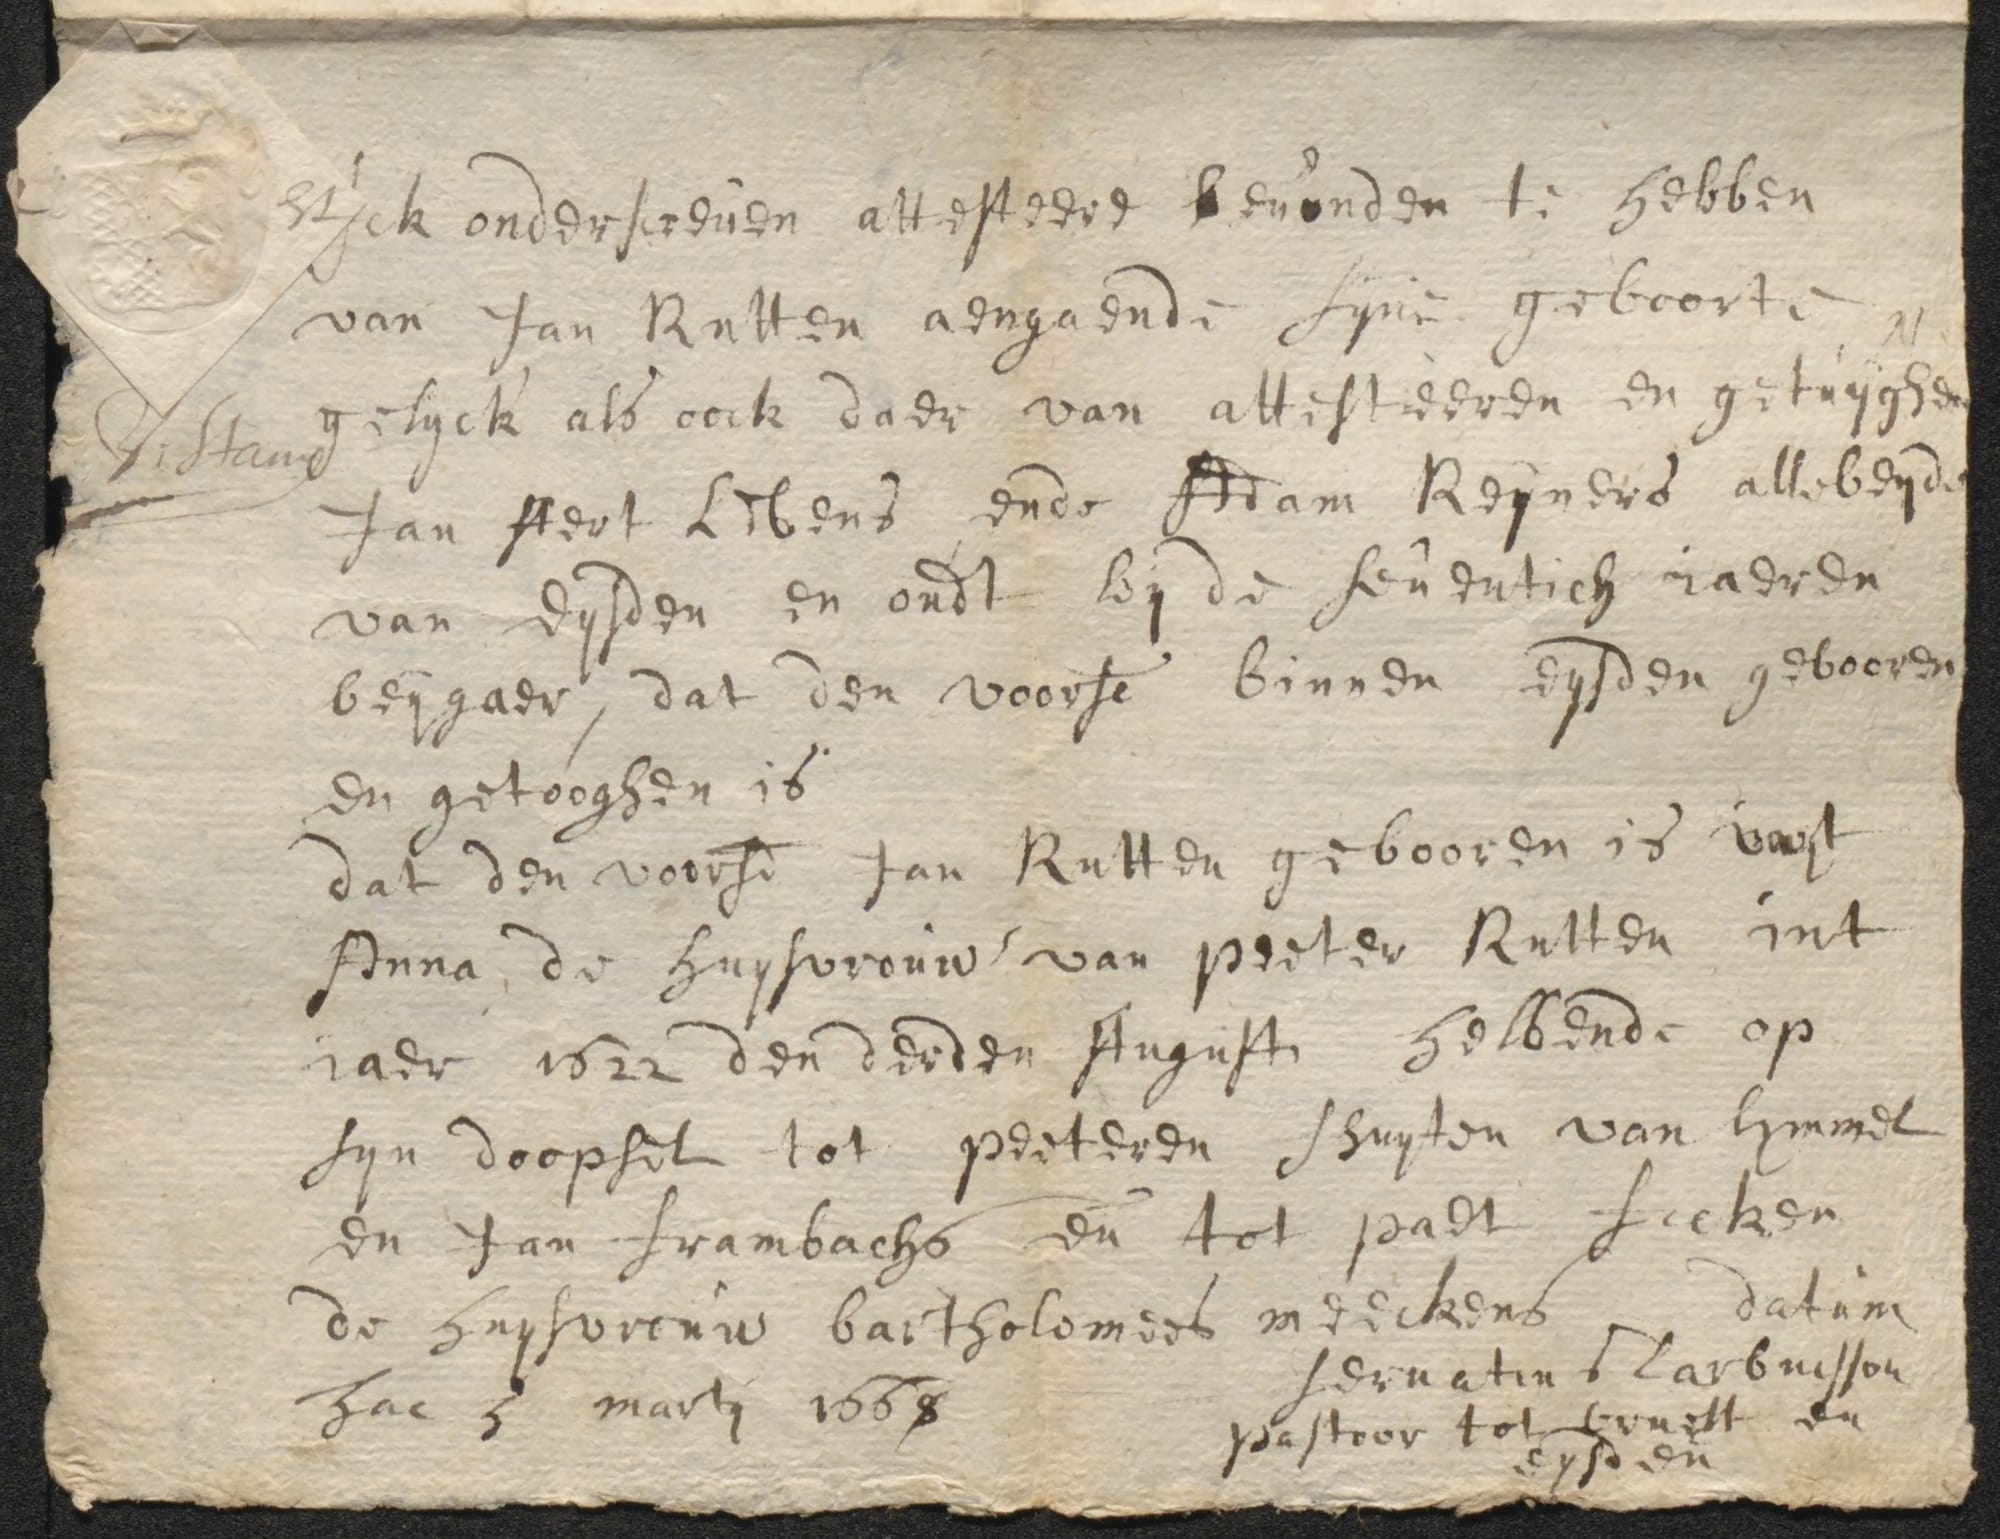 ijck onderscreven attesteere bevonden te hebben
van Jan Rutten aengaende syne geboorte
gelyck als oock daer van attesteeren en getuyghen
Jan Aert Libens ende Adam Reyners allebeyde
van Eysden en oudt by de seventich iaeren
beygaer, dat den voorsc binnen eysden gebooren
en getooghen is
dat den voorsc Jan Rutten gebooren is vuyt
Anna de huysvrouw van peeter Rutten int
iaer 1622 den derden Augusti hebbende op
syn doopsel tot peeteren van hmmel
en Jan frambachs en tot paet
de huysvrouw bartholomees meeckens datum
hac 3 martij 1668
servatius Larbuisson
pastoor tot en
eysden